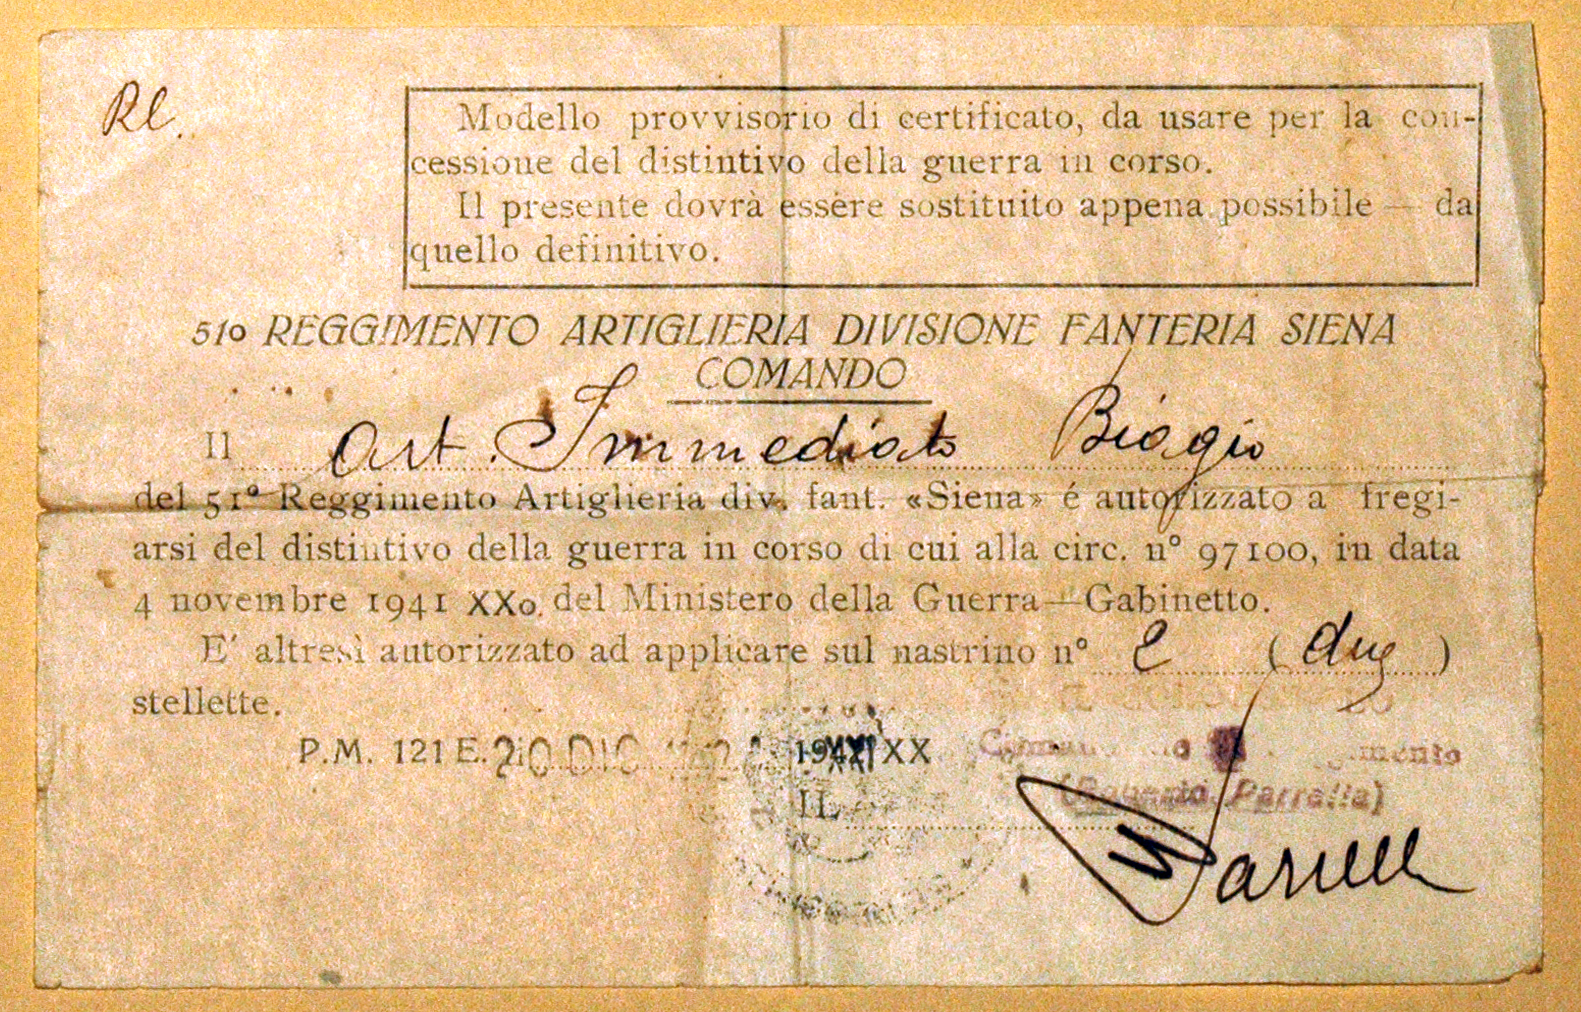 Rl.
Modello provvisorio di certificato, da usare per la con-
cessione del distintivo della guerra in corso.
Il presente dovrà essere sostituito appena possibile — da
quello definitivo.
51o REGGIMENTO ARTIGLIERIA DIVISIONE FANTERIA SIENA
COMANDO
Il Art. Immediato Biagio
del 51° Reggimento Artiglieria div. fant. «Siena» é autorizzato a fregi-
arsi del distintivo della guerra in corso di cui alla circ. n° 97100, in data
4 novembre 1941 XXo. del Ministero della Guerra—Gabinetto.
E' altresì autorizzato ad applicare sul nastrino n° 2 (due)
stellette.
P.M. 121 E. 20 DIC 1942 194 XX
IL